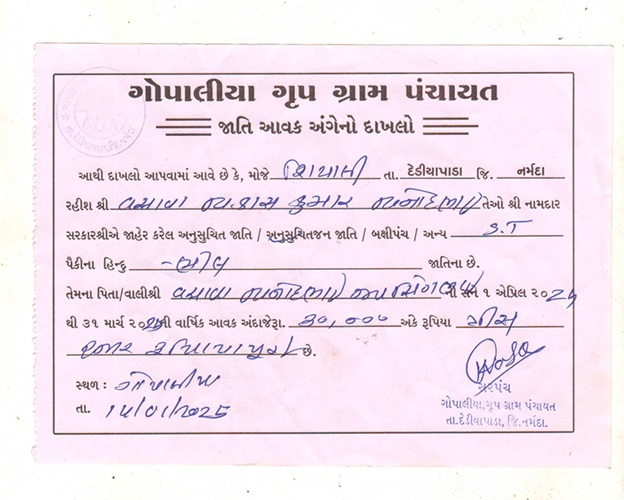 ગોપાલીયા ગૃપ ગ્રામ પંચાયત
જાતિ આવક અંગેનો દાખલો
આથી દાખલો આપવામાં આવે છે કે, મોજે તા. દેડીયાપાડા જિ. નર્મદા
રહીશ શ્રી વસાવા કુમાર તેઓ શ્રી નામદાર
સરકારશ્રીએ જાહેર કરેલ અનુસુચિત જાતિ / અનુસુચિતજન જાતિ / બક્ષીપંચ / અન્ય S.T
પૈકીના હિન્દુ - ભીલ જાતિના છે.
તેમના પિતા/વાલીશ્રી વસાવા ની સને ૧ એપ્રિલ ૨૦૨૪
થી ૩૧ માર્ચ ની વાર્ષિક આવક અંદાજેરૂા. ૩૦,૦૦૦ અંકે રૂપિયા ત્રીસ
હજાર છે.
સ્થળ : ગોપાલીયા
તા. 15/01/2025
સરપંચ
ગોપાલીયા,ગૃપ ગ્રામ પંચાયત
તા.દેડીયાપાડા, જિ.નર્મદા.